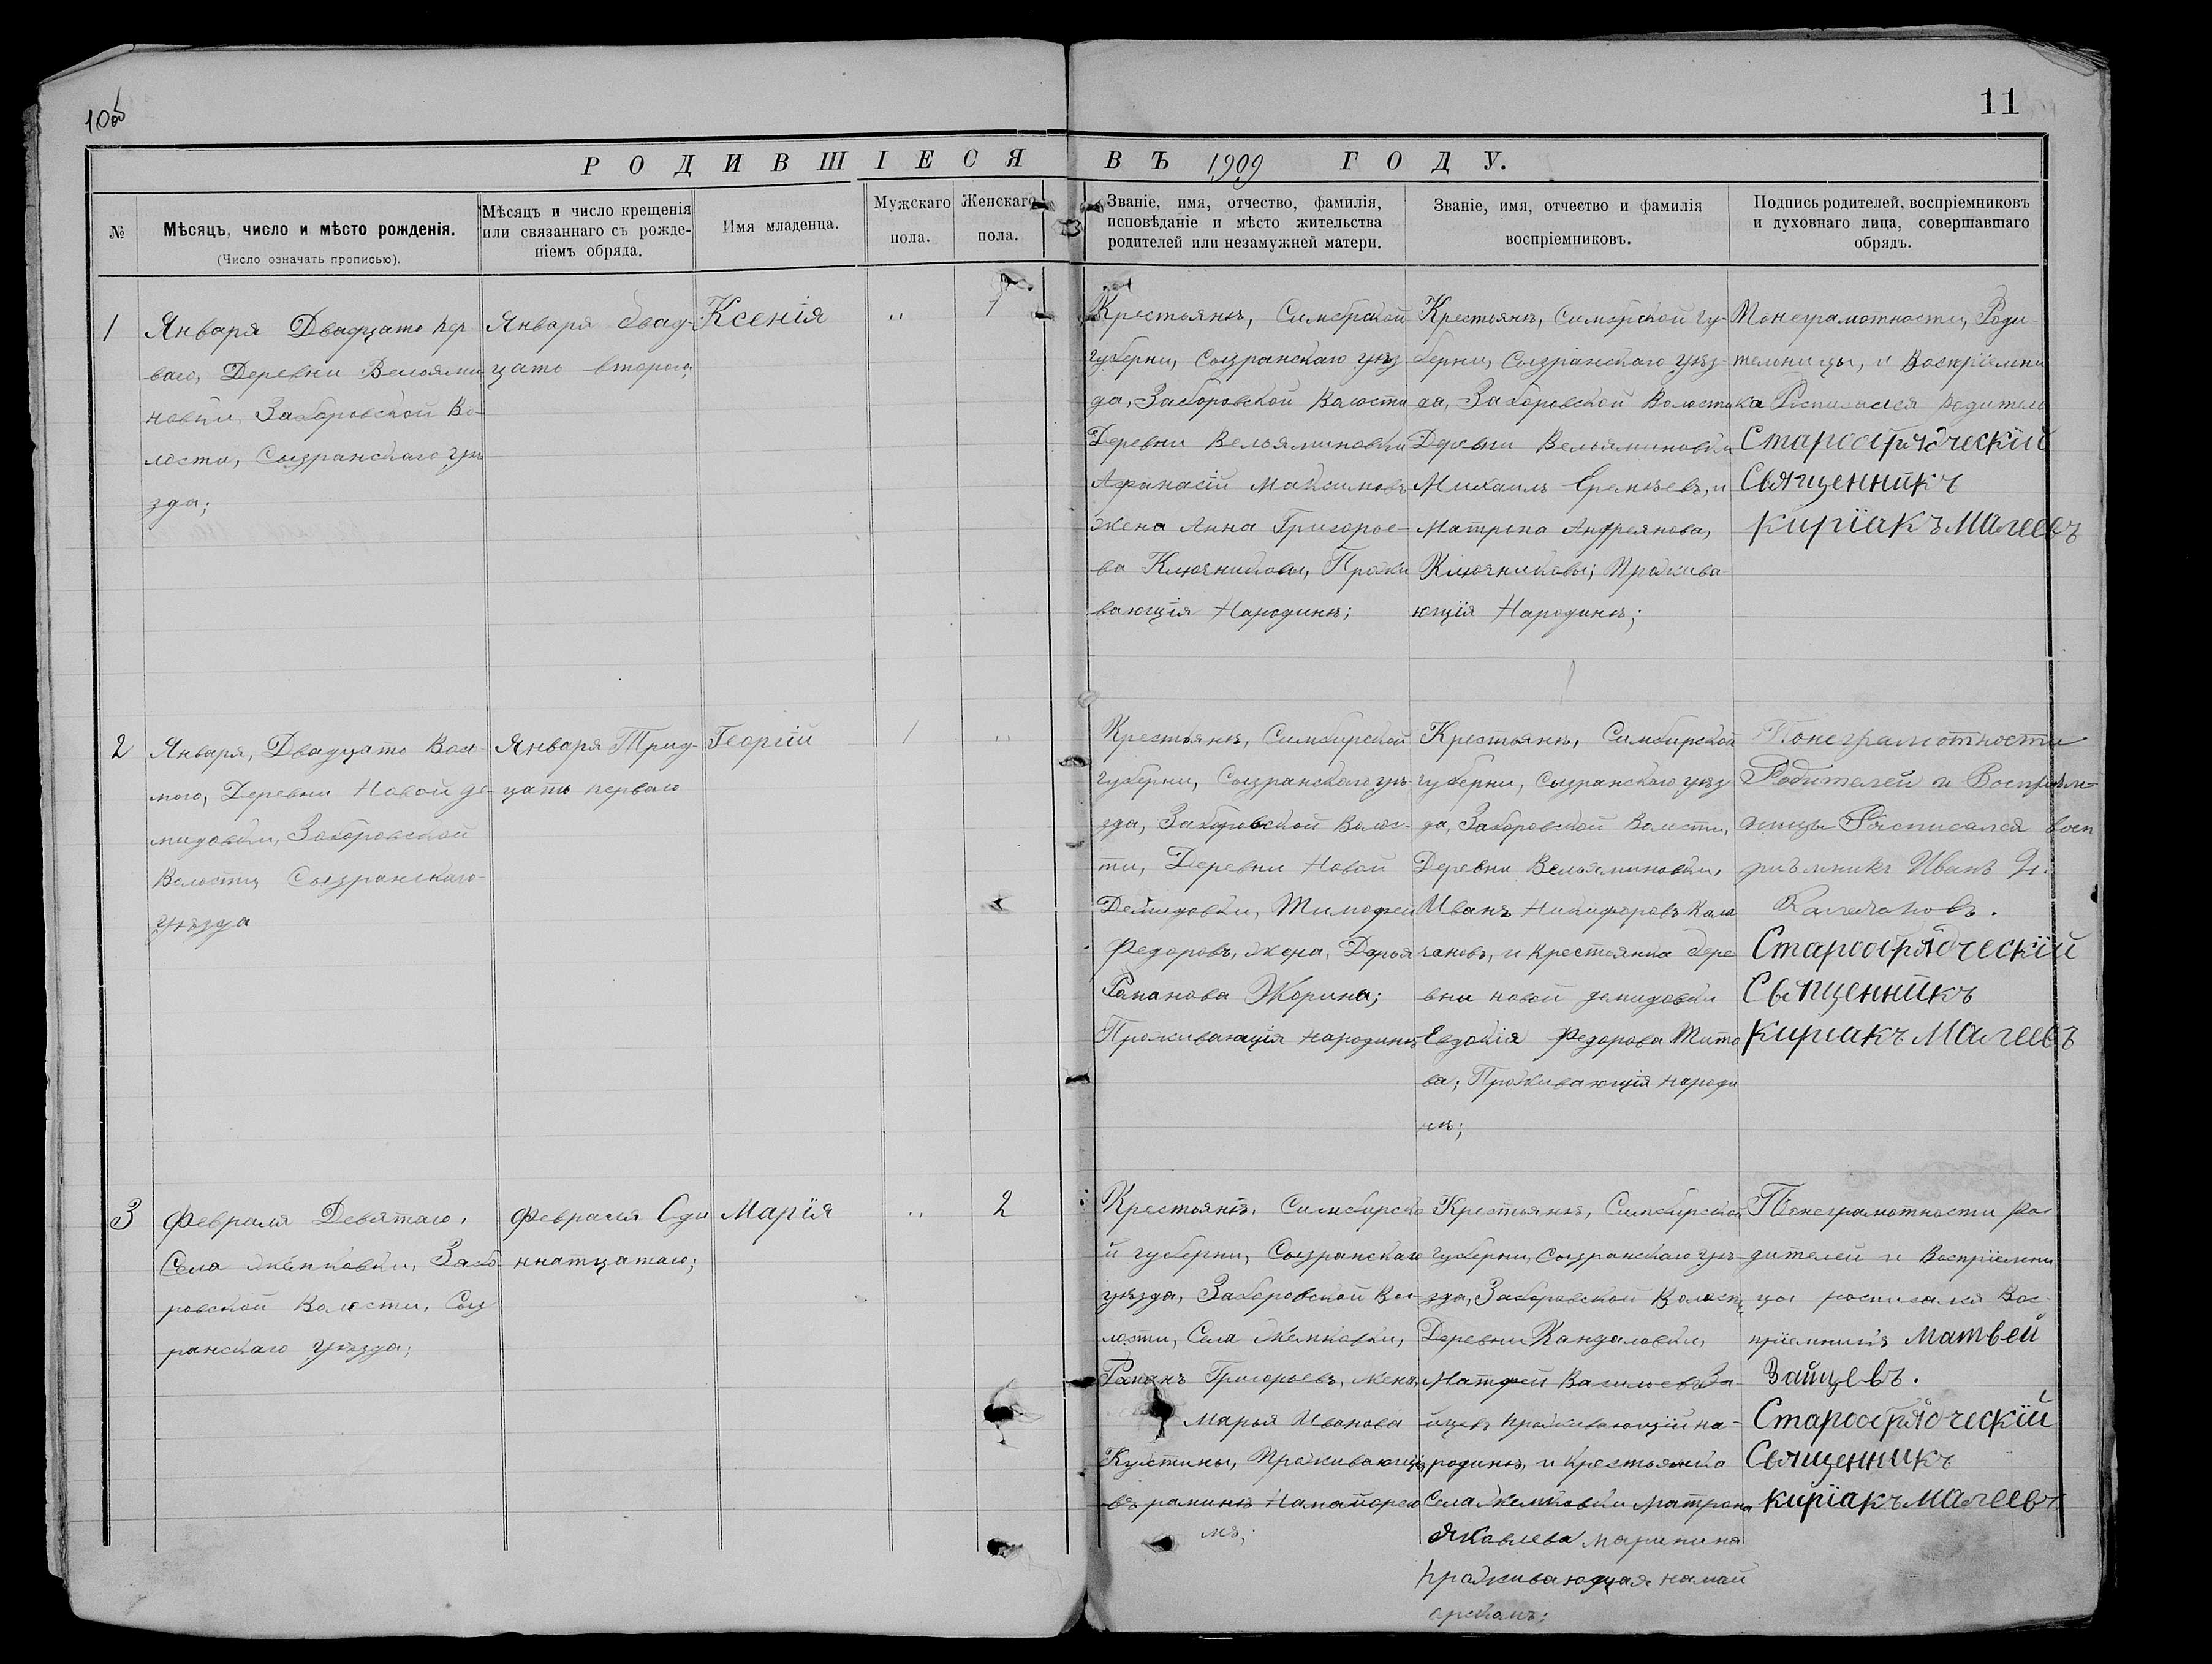 10об
11
РОДИВШІЕСЯ ВЪ 1909 ГОДУ.
№
Мѣсяцъ, число и мѣсто рожденія.
(Число означать прописью).
Мѣсяцъ и число крещенія
или связаннаго съ рожде-
ніемъ обряда.
Имя младенца.
Мужскаго
пола.
Женскаго
пола.
Званіе, имя, отчество, фамилія,
исповѣданіе и мѣсто жительства
родителей или незамужней матери.
Званіе, имя, отчество и фамилія
воспріемниковъ.
Подпись родителей, воспріемниковъ
и духовнаго лица, совершавшаго
обрядъ.
1
Января Двадцать пер
ваго, Деревни Вельями
новки, Заборовской Во-
лости, Сызранскаго уѣ
зда;
Января двад-
цать второго;
Ксенія
"
1
Крестьянѣ, Симбрской
губерни, Сызранскаго уѣз
да, Заборовской Волости
Деревни Вельяминовки
Афанасій Максимовъ
жена Анна Григорое-
ва Ключниковы, Прожи
вающія Народинѣ;
Крестьянѣ, Симбрской гу-
берни, Сызранскаго уѣз-
да, Заборовской Волости
Деревни Вельяминовки
Михаилъ Еремѣевъ, и
Матрена Андреянова,
Ключниковы; Прожива-
ющія Народинѣ;
Понеграмотности, Роди-
тельницы, и Воспріемни
ка Росписался родитель
Старообрядческій
Священникъ
Киріакъ Малеевъ
2
Января, Двадцать Вос-
мого, Деревни Новой де-
мидовки, Заборовской
Волости, Сызранскаго
уѣзда
Января Трид-
цать перваго
Георгій
1
"
Крестьянѣ, Симбирской
губерни, Сызранскаго уѣ-
зда, Заборовской Волос-
ти, Деревни Новой
Демидовки, Тимофей
Федоровъ, жена, Дарья
Романова Жорина;
Проживающія народинѣ
Крестьянѣ, Симбирской
губерни, Сызранскаго уѣз
да, Заборовской Волости,
Деревни Вельяминовки,
Иванъ Никифоровъ Кала
чановъ, и Крестьянка дере
вни новой демидовки
Евдокія Федорова Тито
ва; Проживающія народи
нѣ;
Понеграмотности
Родителей и Воспріем-
ницы Росписался восп
ріемникъ Иванъ Н.
Калачановъ.
Старообрядческій
Священникъ
Киріакъ Малеевъ
3
Февраля Девятаго,
Села Жемковки, Забо-
ровской Волости, Сыз
ранскаго уѣзда;
Февраля Оди
ннатцатаго;
Марія
"
2
Крестьянѣ, Симбирско
й губерни, Сызранскаго
уѣзда, Заборовской Во-
лости, Села Жемковки,
Романъ Григорьевъ, жена,
Марья Иванова
Кустины, Проживающія
Крестьянѣ, Симбирской
губерни, Сызранскаго уѣ-
зда, Заборовской Волости
Деревни Кандаловки,
Матфей Васильевъ За-
йцевъ проживающій на-
родинѣ, и Крестьянка
Села Жемковки Матрона
Яковлева
проживающая
Понеграмотности Ро-
дителей и Воспріемни
цы росписался Вос-
пріемникъ Матвей
Зайцевъ.
Старообрядческій
Священникъ
Киріакъ Малеевъ